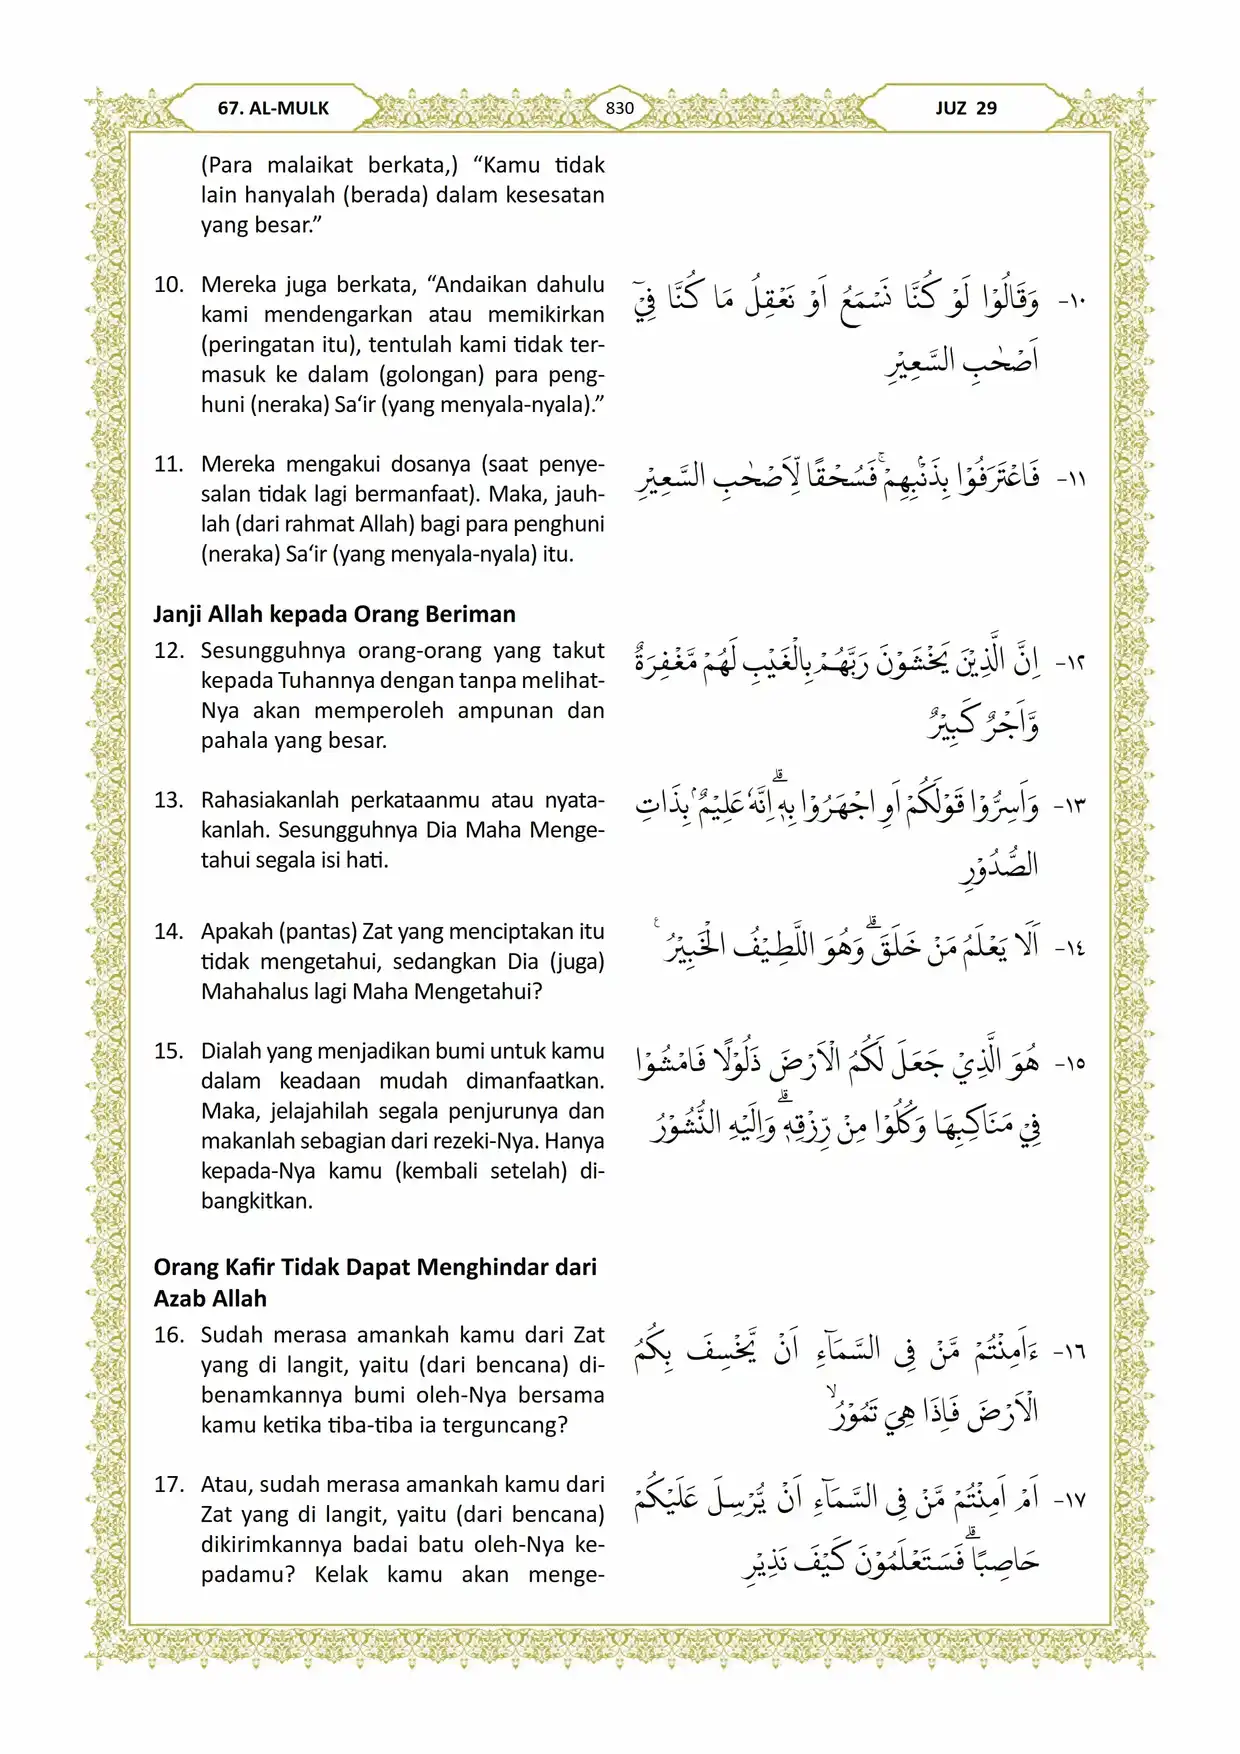 67. AL-MULK
830
JUZ 29
(Para malaikat berkata,) “Kamu tidak
lain hanyalah (berada) dalam kesesatan
yang besar.”
10. Mereka juga berkata, “Andaikan dahulu
kami mendengarkan atau memikirkan
(peringatan itu), tentulah kami tidak ter-
masuk ke dalam (golongan) para peng-
huni (neraka) Sa‘ir (yang menyala-nyala).”
١٠- وَقَالُوْا لَوْ كُنَّا نَسْمَعُ اَوْ نَعْقِلُ مَا كُنَّا فِيْٓ
اَصْحٰبِ السَّعِيْرِ
11. Mereka mengakui dosanya (saat penye-
salan tidak lagi bermanfaat). Maka, jauh-
lah (dari rahmat Allah) bagi para penghuni
(neraka) Sa‘ir (yang menyala-nyala) itu.
١١- فَاعْتَرَفُوْا بِذَنْۢبِهِمْۚ فَسُحْقًا لِّاَصْحٰبِ السَّعِيْرِ
Janji Allah kepada Orang Beriman
12. Sesungguhnya orang-orang yang takut
kepada Tuhannya dengan tanpa melihat-
Nya akan memperoleh ampunan dan
pahala yang besar.
١٢- اِنَّ الَّذِيْنَ يَخْشَوْنَ رَبَّهُمْ بِالْغَيْبِ لَهُمْ مَّغْفِرَةٌ
وَّاَجْرٌ كَبِيْرٌ
13. Rahasiakanlah perkataanmu atau nyata-
kanlah. Sesungguhnya Dia Maha Menge-
tahui segala isi hati.
١٣- وَاَسِرُّوْا قَوْلَكُمْ اَوِ اجْهَرُوْا بِهٖۗ اِنَّهٗ عَلِيْمٌ ۢبِذَاتِ
الصُّدُوْرِ
14. Apakah (pantas) Zat yang menciptakan itu
tidak mengetahui, sedangkan Dia (juga)
Mahahalus lagi Maha Mengetahui?
١٤- اَلَا يَعْلَمُ مَنْ خَلَقَۗ وَهُوَ اللَّطِيْفُ الْخَبِيْرُ ࣖ
15. Dialah yang menjadikan bumi untuk kamu
dalam keadaan mudah dimanfaatkan.
Maka, jelajahilah segala penjurunya dan
makanlah sebagian dari rezeki-Nya. Hanya
kepada-Nya kamu (kembali setelah) di-
bangkitkan.
١٥- هُوَ الَّذِيْ جَعَلَ لَكُمُ الْاَرْضَ ذَلُوْلًا فَامْشُوْا
فِيْ مَنَاكِبِهَا وَكُلُوْا مِنْ رِّزْقِهٖۗ وَاِلَيْهِ النُّشُوْرُ
Orang Kafir Tidak Dapat Menghindar dari
Azab Allah
16. Sudah merasa amankah kamu dari Zat
yang di langit, yaitu (dari bencana) di-
benamkannya bumi oleh-Nya bersama
kamu ketika tiba-tiba ia terguncang?
١٦- ءَاَمِنْتُمْ مَّنْ فِى السَّمَاۤءِ اَنْ يَّخْسِفَ بِكُمُ
الْاَرْضَ فَاِذَا هِيَ تَمُوْرُۙ
17. Atau, sudah merasa amankah kamu dari
Zat yang di langit, yaitu (dari bencana)
dikirimkannya badai batu oleh-Nya ke-
padamu? Kelak kamu akan menge-
١٧- اَمْ اَمِنْتُمْ مَّنْ فِى السَّمَاۤءِ اَنْ يُّرْسِلَ عَلَيْكُمْ
حَاصِبًاۗ فَسَتَعْلَمُوْنَ كَيْفَ نَذِيْرِ